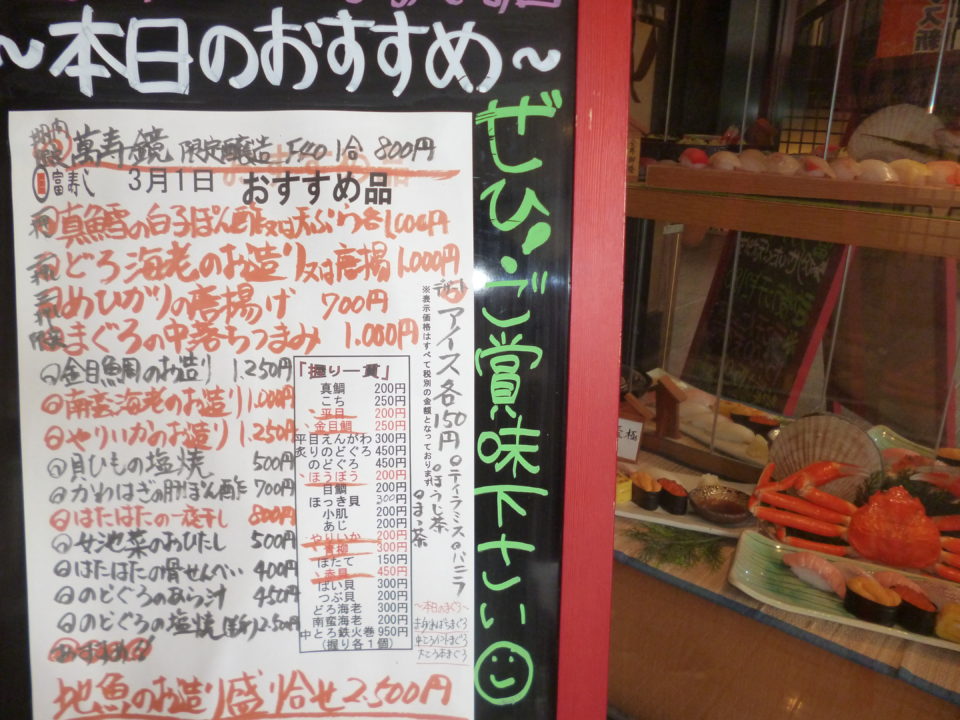 ~本日のおすすめ~
萬寿鏡 限定醸造 F40 1合 800円
富寿し 3月1日 おすすめ品
真鱈の白子ぽん酢又は天ぷら各1,000円
どろ海老のお造り又は唐揚 1,000円
めひかりの唐揚げ 700円
まぐろの中落ちつまみ 1.000円
金目鯛のお造り 1.250円
南蛮海老のお造り 1.000円
やりいかのお造り 1.250円
貝ひもの塩焼 500円
かわはぎの肝ぽん酢 700円
はたはたの一夜干し 800円
女池菜のおひたし 500円
はたはたの骨せんべい 400円
のどぐろのあら汁 450円
のどぐろの塩焼
地魚のお造り盛り合せ 2.500円
「握り一貫」
真鯛 200円
こち 250円
平目 200円
金目鯛 250円
平目えんがわ 300円
炙りのどぐろ 450円
のどぐろ 450円
ほうぼう 200円
目鯛 200円
ほっき貝 300円
小肌 200円
あじ 200円
やりいか 200円
300円
ほたて 150円
赤貝 450円
ばい貝 300円
つぶ貝 200円
どろ海老 300円
南蛮海老 200円
中とろ鉄火巻 950円
(握り各1個)
デザート
アイス各150円
ティラミス バニラ
ほうじ茶
まっ茶
※表示価格はすべて税別の金額となっております
~本日のまぐろ~
ぜひ!ご賞味下さい